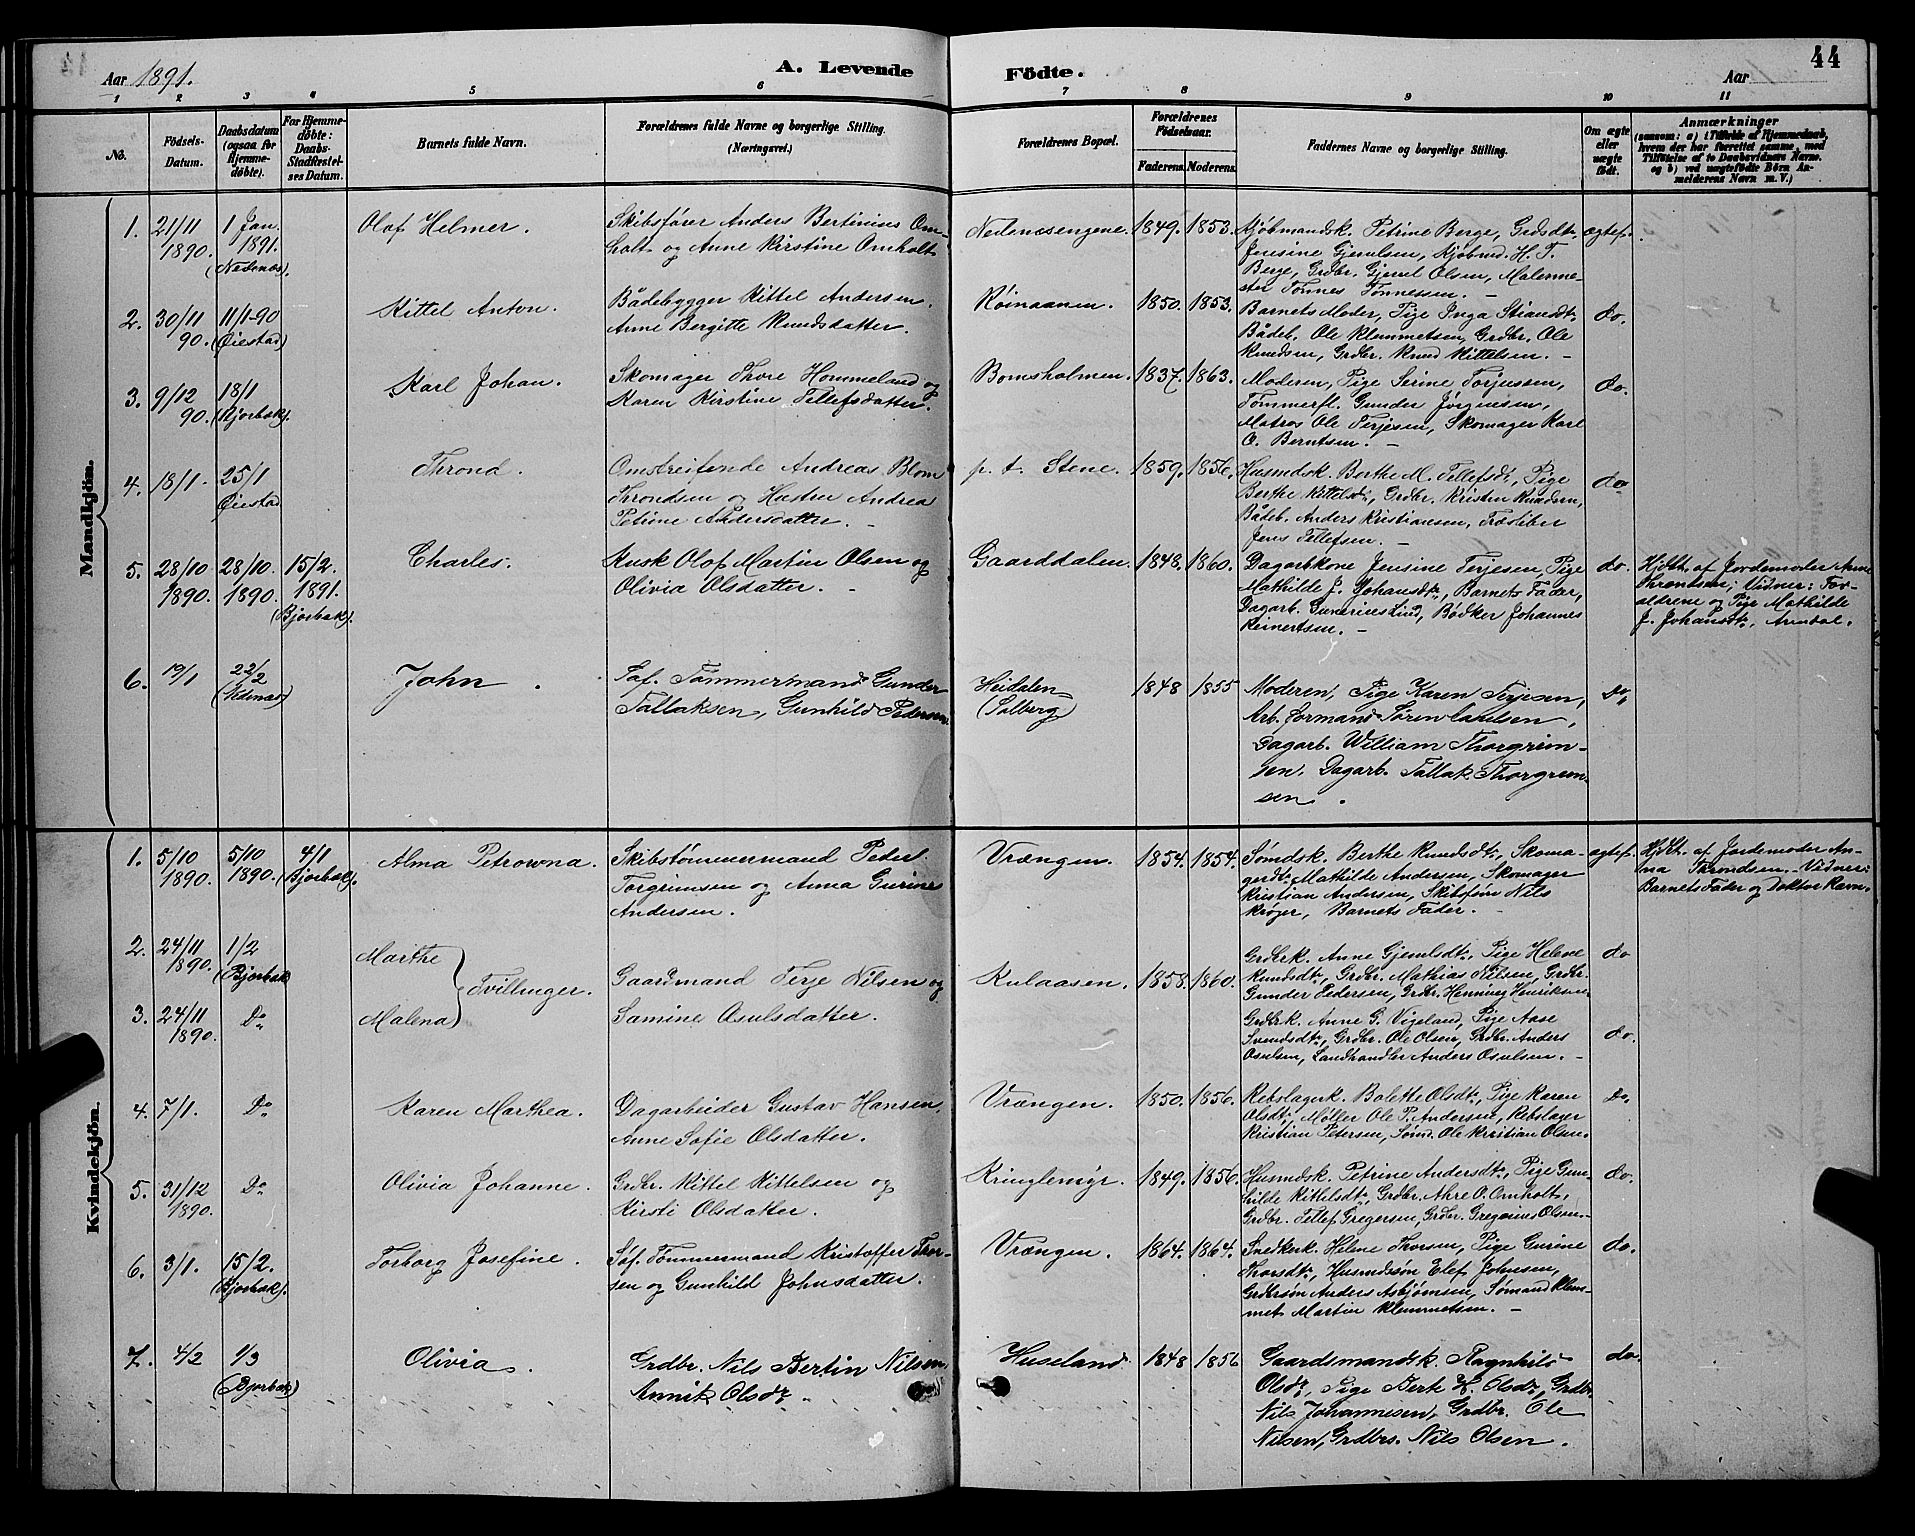 44
Aar 1891.
A. Levende Födte.
Aar
1 2 3 4 5 6 7 8 9 10 11
No.
Födsels-Datum.
Daabsdatum (ogsaa for Hjemmedøbte).
For Hjemmedøbte: Daabs-Stadfæstelses Datum.
Barnets fulde Navn.
Forældrenes fulde Navne og borgerlige Stilling. (Næringsvei.)
Forældrenes Bopæl.
Forældrenes Fødselsaar.
Faderens. Moderens.
Faddernes Navne og borgerlige Stilling.
Om ægte eller uægte født.
Anmærkninger
(saasom: a) i Tilfælde af Hjemmedaab, hvem der har forrettet samme, med Tilføielse af to Daabsvidners Navne. og b) ved uægtefødte Børn Anmelderens Navn m. V.)
Mandkjön.
1. 21/11 1890. 1 Jan. 1891. (Nedenæs). Olaf Helmer. Skibsfører Anders Bertinius Omholt og Anne Kirstine Omholt Nedenæsengene. 1849. 1853. Kjøbmandsk. Petrine Berge, Grdsdt. Jensine Gjeruldsen, Kjøbmd. H. T. Berge, Grdbr. Gjerul Olsen, Malermester Tønnes Tønnessen. – ægtef.
2. 30/11 90. 11/1-90 (Øiestad) Kittel Anton. Baadebygger Kittel Andersen. Anne Bergitte Knudsdatter. Røinaanen. 1850. 1853. Barnets Moder, Pige Inga Stiansdt. Bådeb. Ole Klemmetsen, Grdbr. Ole Knudsen, Grdbr. Knud Kittelsen. – do.
3. 9/12 90. 18/1 (Bjorbæk). Karl Johan. Skomager Thore Hommeland og Karen Kirstine Tellefsdatter. Bomsholmen. 1837. 1863. Moderen, Pige Serine Torjussen, Tømmerfl. Gunder Jørgensen, Matros Ole Terjesen, Skomager Karl O. Berntsen. – do.
4. 18/1. 25/1 Øiestad Thrond. Omstreifende Andreas Blom Throndsen og Hustru Andrea Petrine Andersdatter. – p. t. Stene. 1859. 1856. Husmdsk. Berthe M. Tellefsdt., Pige Berthe Kittelsdt., Grdbr. Kristen Knudsen, Bådeb. Anders Kristiansen, Jens Tellefsen. – do
5. 28/10 1890. 28/10. 1890. 15/2. 1891. (Bjorbæk). Charles. Kusk Olaf Martin Olsen og Olivia Olsdatter. – Gaarddalen. 1848. 1860. Dagarbkone Jensine Terjesen, Pige Mathilde J. Johansdt., Barnets Fader, Dagarb. Gunerius Lind, Bødker Johannes Reinertsen. – do. Hjdt. af Jordemoder Anne Throndsen; Vidner: Forældrene og Pige Mathilde J. Johansdt., Arendal.
6. 19/1 22/2 (Nedenæs) John. Søf. Tømmermand Gunder Tallaksen, Gunhild Pedersen Heidalen (Solberg) 1848 1855 Moderen, Pige Karen Terjesen, Arb. formand Søren , Dagarb. William Thorgrimsen. Dagarb. Tallak Thorgrimsen. Do.
Kvindekjön.
1. 5/10 1890. 5/10 1890. 4/1 (Bjorbæk). Alma Petrowna. Skibstømmermand Peder Torgrimsen og Anna Gurine Andersen. Vrængen. 1854. 1854. Sømdsk. Berthe Knudsdt., Skomagerdt. Mathilde Andersen, Skomager Kristian Andersen, Skibsføre Nils Krøger, Barnets Fader. – ægtef. Hjdt. af Jordemoder Anna Throndsen. – Vidner: Barnets Fader og Doktor Ravn.
2. 24/11 1890. 1/2 (Bjorbæk) Marthe Tvillinger. Gaardmand Terje Nilsen og Samine Osulsdatter. Kulaasen. 1858. 1860. Grdbrk. Anne Gjerulsdt., Pige Helene Knudsdt., Grdbr. Mathias Nilsen, Grdbr. Gunder Pedersen, Grdbr. Henning Henriksen. do
3. 24/11 1890. Do Malena Grdbrk. Anne G. Vigeland, Pige Aase Svendsdt., Grdbr. Ole Olsen, Grdbr. Anders Osulsen, Landhandler Anders Osulsen. – do.
4. 7/1. Do Karen Marthea. Dagarbeider Gustav Hansen. Anne Sofie Olsdatter. Vrængen. 1850. 1856. Rebslagerk. Bolette Olsdt., Pige Karen Olsdt., Møller Ole P. Andersen, Rebslager Kristian Petersen, Sømd. Ole Kristian Olsen. Do.
5. 31/12 1890. Do Olivia Johanne. Grdbr. Kittel Kittelsen og Kirsti Olsdatter. Kringlemyr. 1849. 1856. Husmdsk. Petrine Andersdt., Pige Gunhilde Kittelsdt., Grdbr. Ahre O. Omholt, Grdbr. Tellef Gregersen, Grdbr. Gregorius Olsen. do.
6. 3/1. 15/2. (Bjorbæk). Torborg Josefine. Søf. Tømmermand Kristoffer Thorsen og Gunhild Johnsdatter. Vrængen. 1864. 1864. Snedkerk. Helene Thorsen, Pige Gurine Thorsdt., Husmdssøn Elef Johnsen, Grdbrsøn Anders Asbjørnsen, Sømand Klemmet Martin Klemmetsen. – do.
7. 4/2 1/3 (Bjorbæk) Olivia. Grdbr. Nils Bertin Nilsen, Annik Olsdt. Huseland. 1848 1856 Gaardsmandsk. Ragnhild Olsdt, Pige Berte H. Olsdt, Grdbr. Nils Johannesen, Grdbr. Ole Nilsen, Grdbrs. Nils Olsen. do.